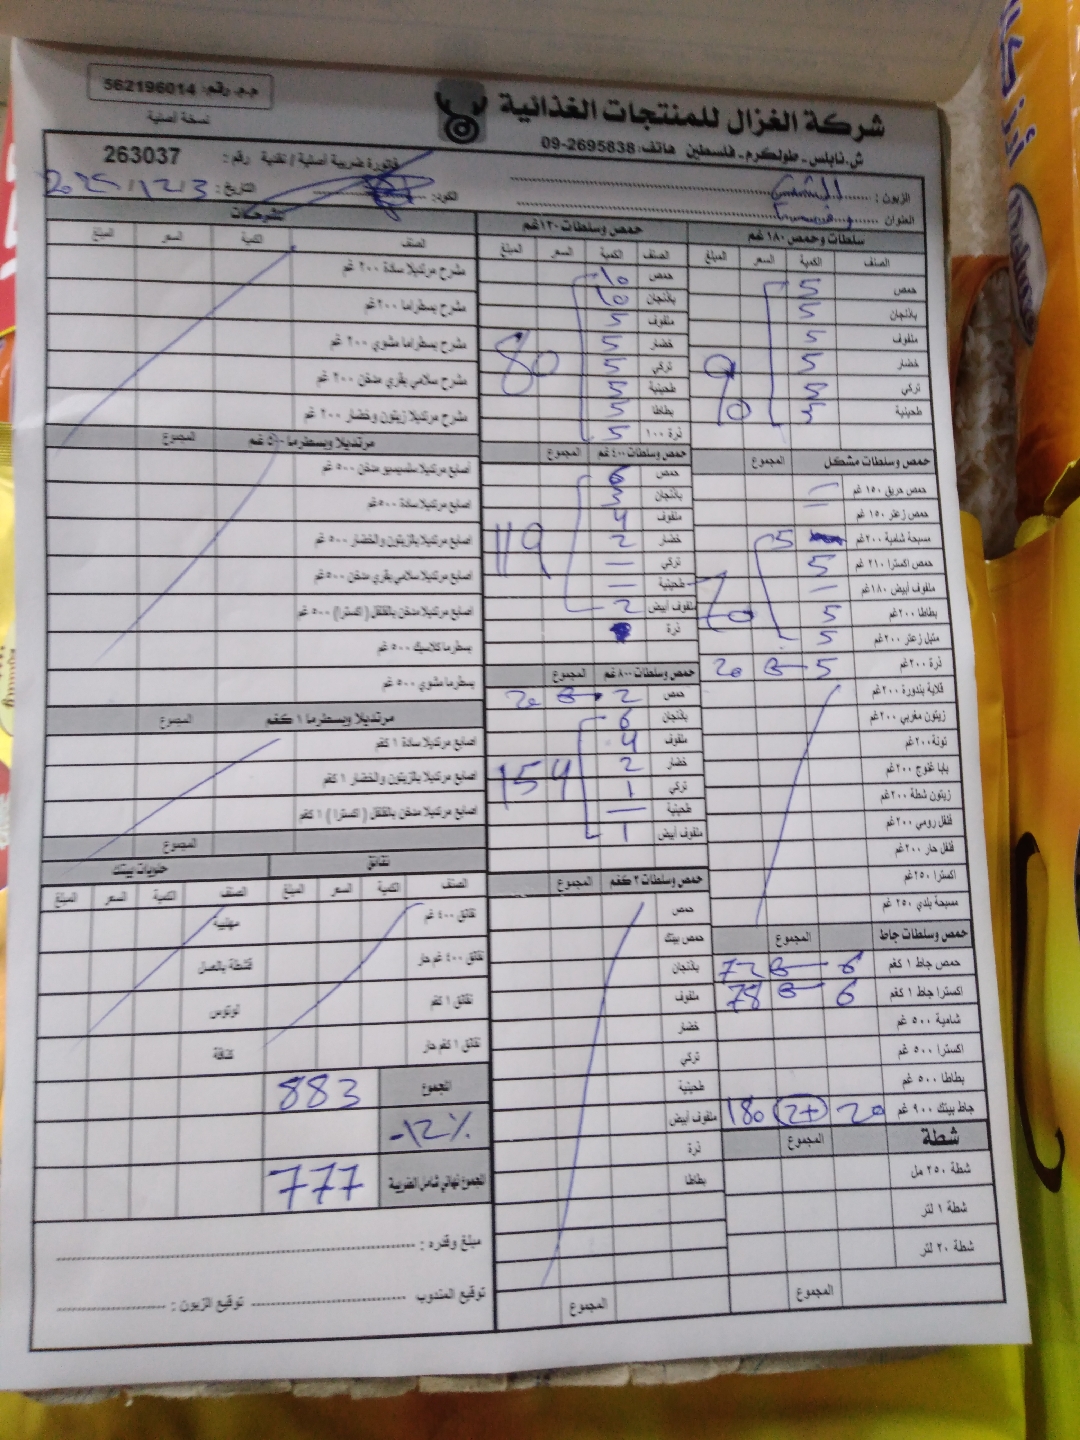 م.م. رقم: 562196014
نسخة أصلية
شركة الغزال للمنتجات الغذائية
ش.نابلس - طولكرم - فلسطين هاتف: 09-2695838
فاتورة ضريبية أصلية / نقدية رقم: 263037
الزبون:
الكود:
التاريخ: 2025/12/3
العنوان
سلطات وحمص ١٨٠ غم
الصنف الكمية السعر المبلغ
حمص 5
باذنجان 5
ملفوف 5
خضار 5
تركي 5
طحينية 5
90
حمص وسلطات مشكل المجموع
حمص حريق ١٥٠ غم —
حمص زعتر ١٥٠ غم —
مسبحة شامية ٢٠٠غم 5
حمص اكسترا ٢١٠ غم 5
ملفوف أبيض ١٨٠غم —
بطاطا ٢٠٠غم 5
متبل زعتر ٢٠٠غم 5
70
ذرة ٢٠٠غم 5 20
قلاية بندورة ٢٠٠غم
زيتون مغربي ٢٠٠غم
تونة ٢٠٠غم
بابا غنوج ٢٠٠غم
زيتون شطة ٢٠٠غم
فلفل رومي ٢٠٠غم
فلفل حار ٢٠٠غم
اكسترا ٢٥٠غم
مسبحة بلدي ٢٥٠ غم
حمص وسلطات جاط المجموع
حمص جاط ١ كغم 6 72
اكسترا جاط ١ كغم 6 78
شامية ٥٠٠ غم
اكسترا ٥٠٠ غم
بطاطا ٥٠٠ غم
جاط بيتك ٩٠٠ غم 20 2+ 180
شطة المجموع
شطة ٢٥٠ مل
شطة ١ لتر
شطة ٢٠ لتر
المجموع
حمص وسلطات ١٣٠غم
الصنف الكمية السعر المبلغ
حمص 10
باذنجان 10
ملفوف 5
خضار 5
تركي 5
طحينية 5
بطاطا 5
ذرة ١٠٠ 5
80
حمص وسلطات ٤٠٠ غم المجموع
حمص 6
باذنجان 3
ملفوف 4
خضار 2
تركي —
طحينية —
ملفوف أبيض 2
ذرة
119
حمص وسلطات ٨٠٠ غم المجموع
حمص 2 20
باذنجان 6
ملفوف 4
خضار 2
تركي 1
طحينية —
ملفوف أبيض 1
154
حمص وسلطات ٢ كغم المجموع
حمص
حمص بيتك
باذنجان
ملفوف
خضار
تركي
طحينية
ملفوف أبيض
ذرة
بطاطا
المجموع
مشرحات
الصنف الكمية السعر المبلغ
مشرح مرتديلا سادة ٢٠٠ غم
مشرح بسطراما ٢٠٠غم
مشرح بسطراما مشوي ٢٠٠ غم
مشرح سلامي بقري مدخن ٢٠٠ غم
مشرح مرتديلا زيتون وخضار ٢٠٠ غم
مرتديلا وبسطرما ٥٠٠ غم المجموع
اصابع مرتديلا مدخن ٥٠٠ غم
اصابع مرتديلا سادة ٥٠٠غم
اصابع مرتديلا بالزيتون والخضار ٥٠٠ غم
اصابع مرتديلا سلامي بقري مدخن ٥٠٠ غم
اصابع مرتديلا مدخن بالفلفل (اكسترا) ٥٠٠ غم
بسطرما كلاسيك ٥٠٠ غم
بسطرما مشوي ٥٠٠ غم
مرتديلا وبسطرما ١ كغم المجموع
اصابع مرتديلا سادة ١ كغم
اصابع مرتديلا بالزيتون والخضار ١ كغم
اصابع مرتديلا مدخن بالفلفل (اكسترا) ١ كغم
المجموع
نقانق
الصنف الكمية السعر المبلغ
نقانق ٤٠٠ غم
نقانق ٤٠٠ غم حار
نقانق ١ كغم
نقانق ١ كغم حار
حلويات بيتك
الصنف الكمية السعر المبلغ
مهلبية
قشطة بالعسل
لوتوس
كنافة
المجموع 883
-12%
المجموع نهائي شامل الضريبة 777
مبلغ وقدره:
توقيع المندوب
توقيع الزبون: